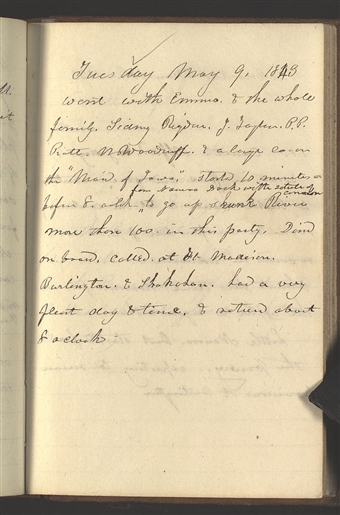 Tuesday May 9, 1843
went with Emma. & the whole
family. Sidney Rigdon. J. Taylor. P.P.
Pratt. W. Woodruff. & a large co. on
the "Maid of Iowa," start 10 minutes
from Nauvoo Dock with salute of cannon
before 8. to go up River
more than 100. in this party. Dind
on board. called at Ft Madison.
Burlington. & Shokokon. had a very
day & time. & return about
8 oclock